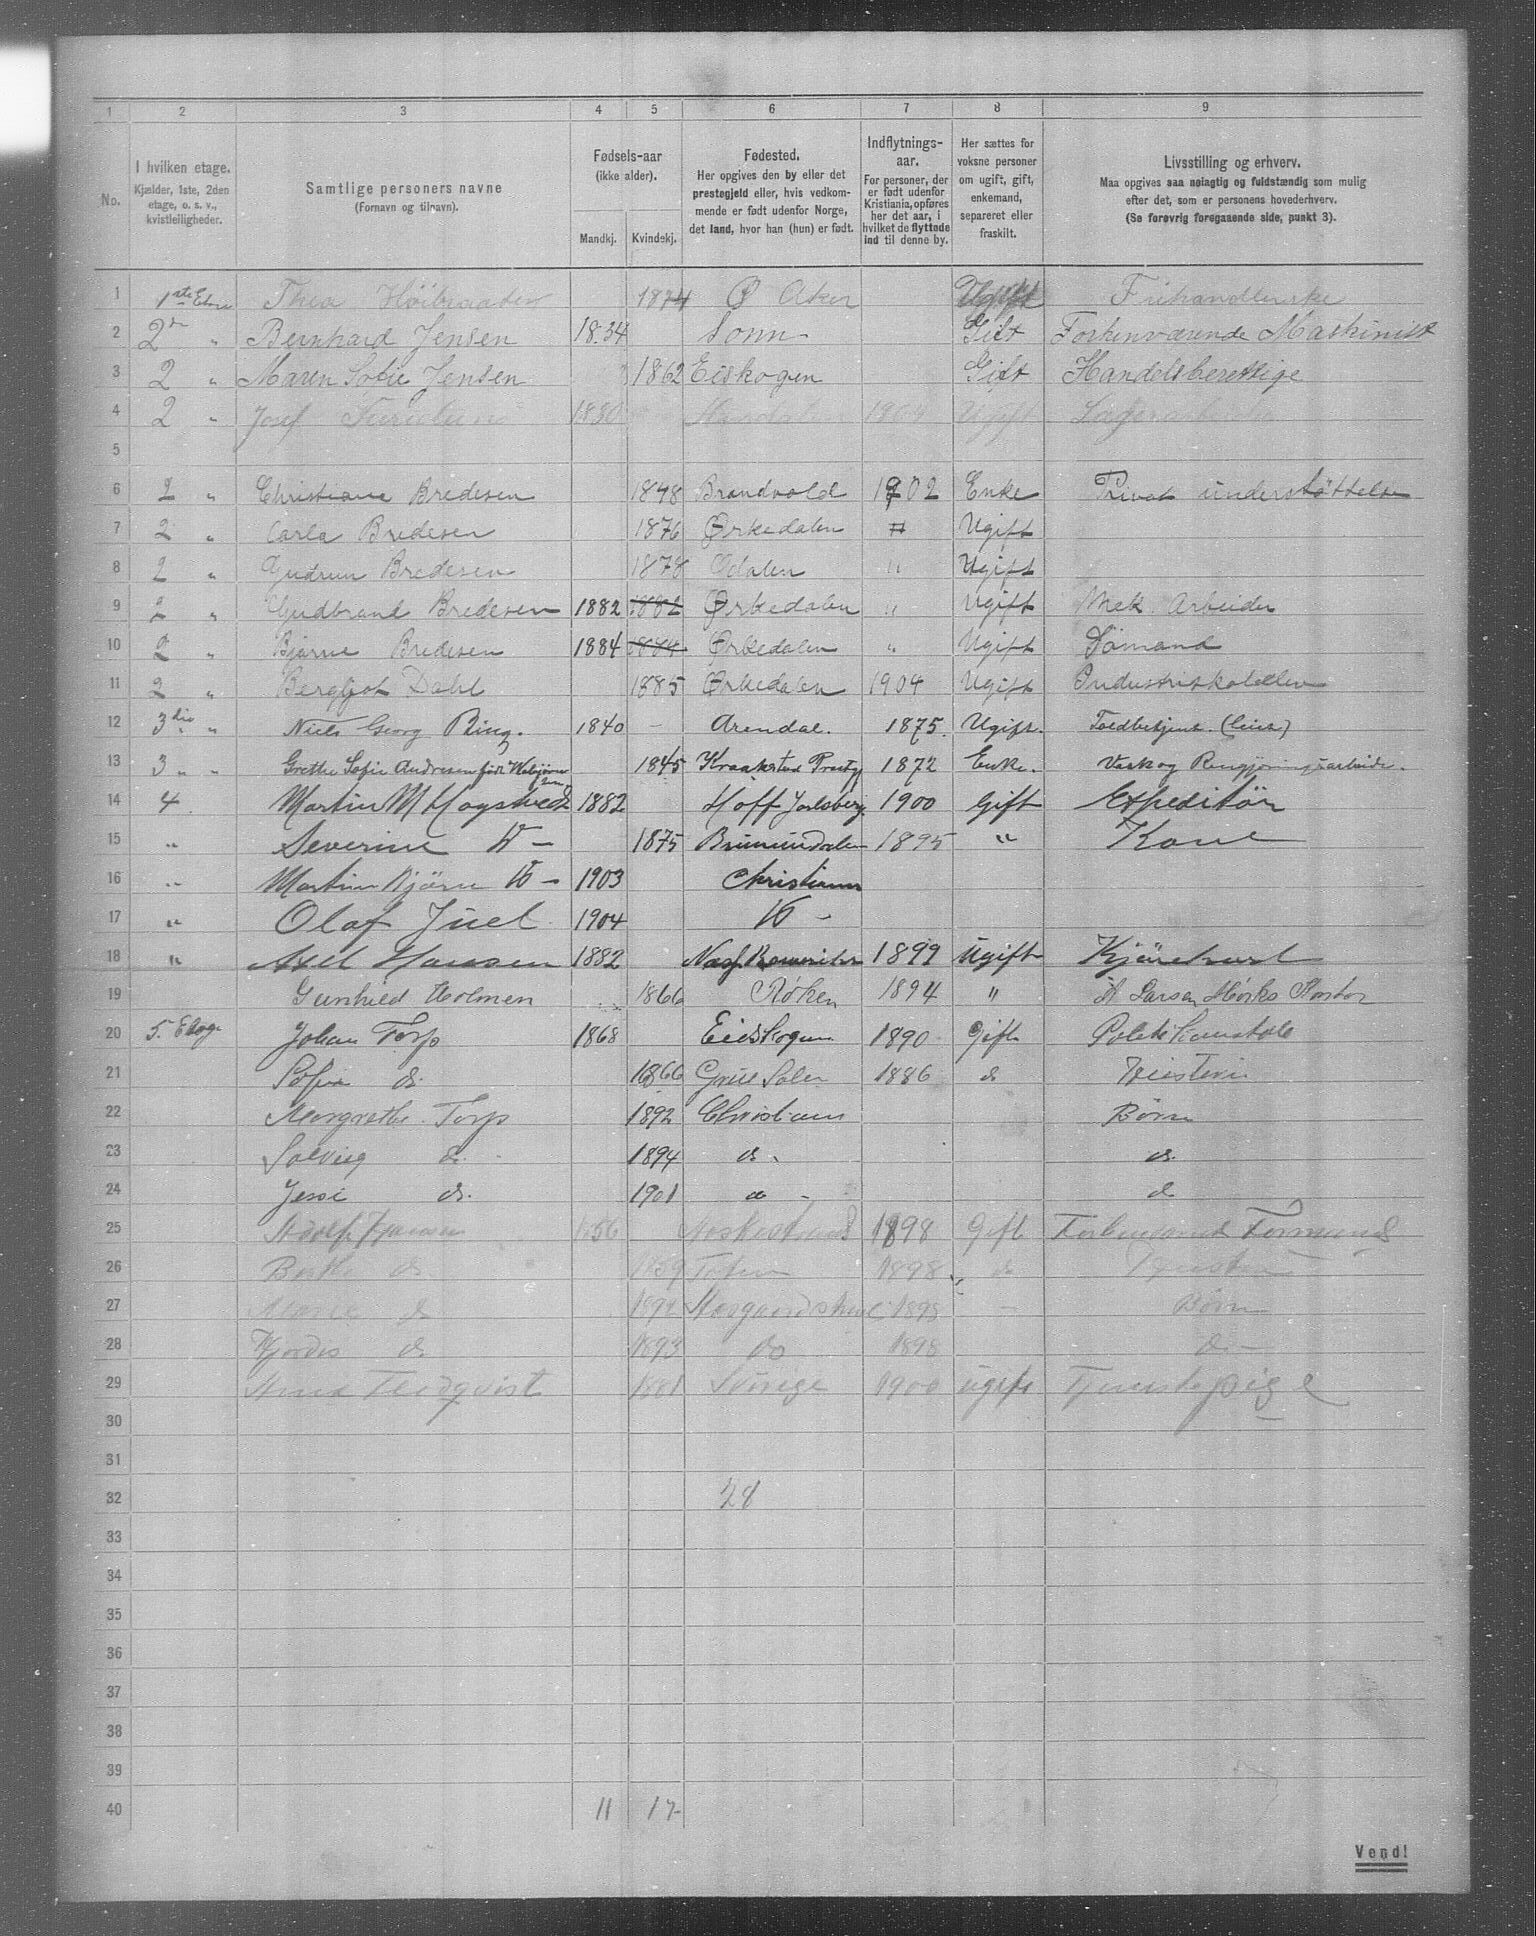 1 2 3 4 5 6 7 8 9
No.
I hvilken etage.
Kjælder, 1ste, 2den
etage, o. s. v.,
kvistleiligheder.
Samtlige personers navne
(Fornavn og tilnavn).
Fødsels-aar
(ikke alder).
Mandkj. Kvindekj.
Fødested.
Her opgives den by eller det
prestegjeld eller, hvis vedkom-
mende er født udenfor Norge,
det land, hvor han (hun) er født.
Indflytnings-
aar.
For personer, der
er født udenfor
Kristiania, opføres
her det aar, i
hvilket de flyttede
ind til denne by.
Her sættes for
voksne personer
om ugift, gift,
enkemand,
separeret eller
fraskilt.
Livsstilling og erhverv.
Maa opgives saa nøiagtig og fuldstændig som mulig
efter det, som er personens hovederhverv.
(Se forøvrig foregaaende side, punkt 3).
1 1ste Etage Thea 1874 Ø Aker Ugift Frihandlerske
2 2den " Bernhard Jensen 1834 Sonn Gift Forhenværende Maskinist
3 2 " Maren Sofie Jensen 1862 Eiskogen Gift Handelsberettige
4 2 " Josef 1880 Ugift
5
6 2 " Christiane Bredesen 1848 Brandvold 1902 Enke Privat understøttelse
7 2 " Carla Bredesen 1876 Ørkedalen " Ugift
8 2 " Gudrun Bredesen 1878 Odalen " Ugift
9 2 " Gudbrand Bredesen 1882 1882 Ørkedalen " Ugift Mek Arbeider
10 2 " Bjarne Bredesen 1884 1884 Ørkedalen " Ugift Sömand
11 2 " Bergljot Dahl 1885 Ørkedalen 1904 Ugift Industriskoleelev
12 3die " Niels Georg Ring. 1840 - Arendal. 1875. Ugift. Toldbetjent.
13 3 " " Grethe Sofie Andresen født 1845 Kraakstad Prestg 1872 Enke. Vask og Rengjøringsarbeide.
14 4 Martin M 1882 Hoff Jarlsberg. 1900 Gift Expeditör
15 " Severine D - 1875 Brumundalen 1895 " Kone
16 " Martin Bjørn D - 1903 Christiania
17 " Olaf Juel 1904 D -
18 " Axel Hansen 1882 1899 Ugift Kjörekarl
19 Gunhild Holmen 1866 Røken 1894 "
20 5. Etage Johan Torp 1868 Eidskogen 1890 Gift Politikonstabl
21 Sofie do. 1866 Grue Soler 1886 do
22 Margrethe Torp 1892 Christiania Børn
23 Solveig do. 1894 do. do.
24 Jessi do. 1901 do - do
25 1856 1898 Gift
26 do 1859 1898 do
27 do 1898 - Børn
28 Hjordis do 1893 do 1898 do -
29 1881 Sverige 1900 ugift Tjenestepige
30
31
32 28
33
34
35
36
37
38
39
40 11 17
Vend!